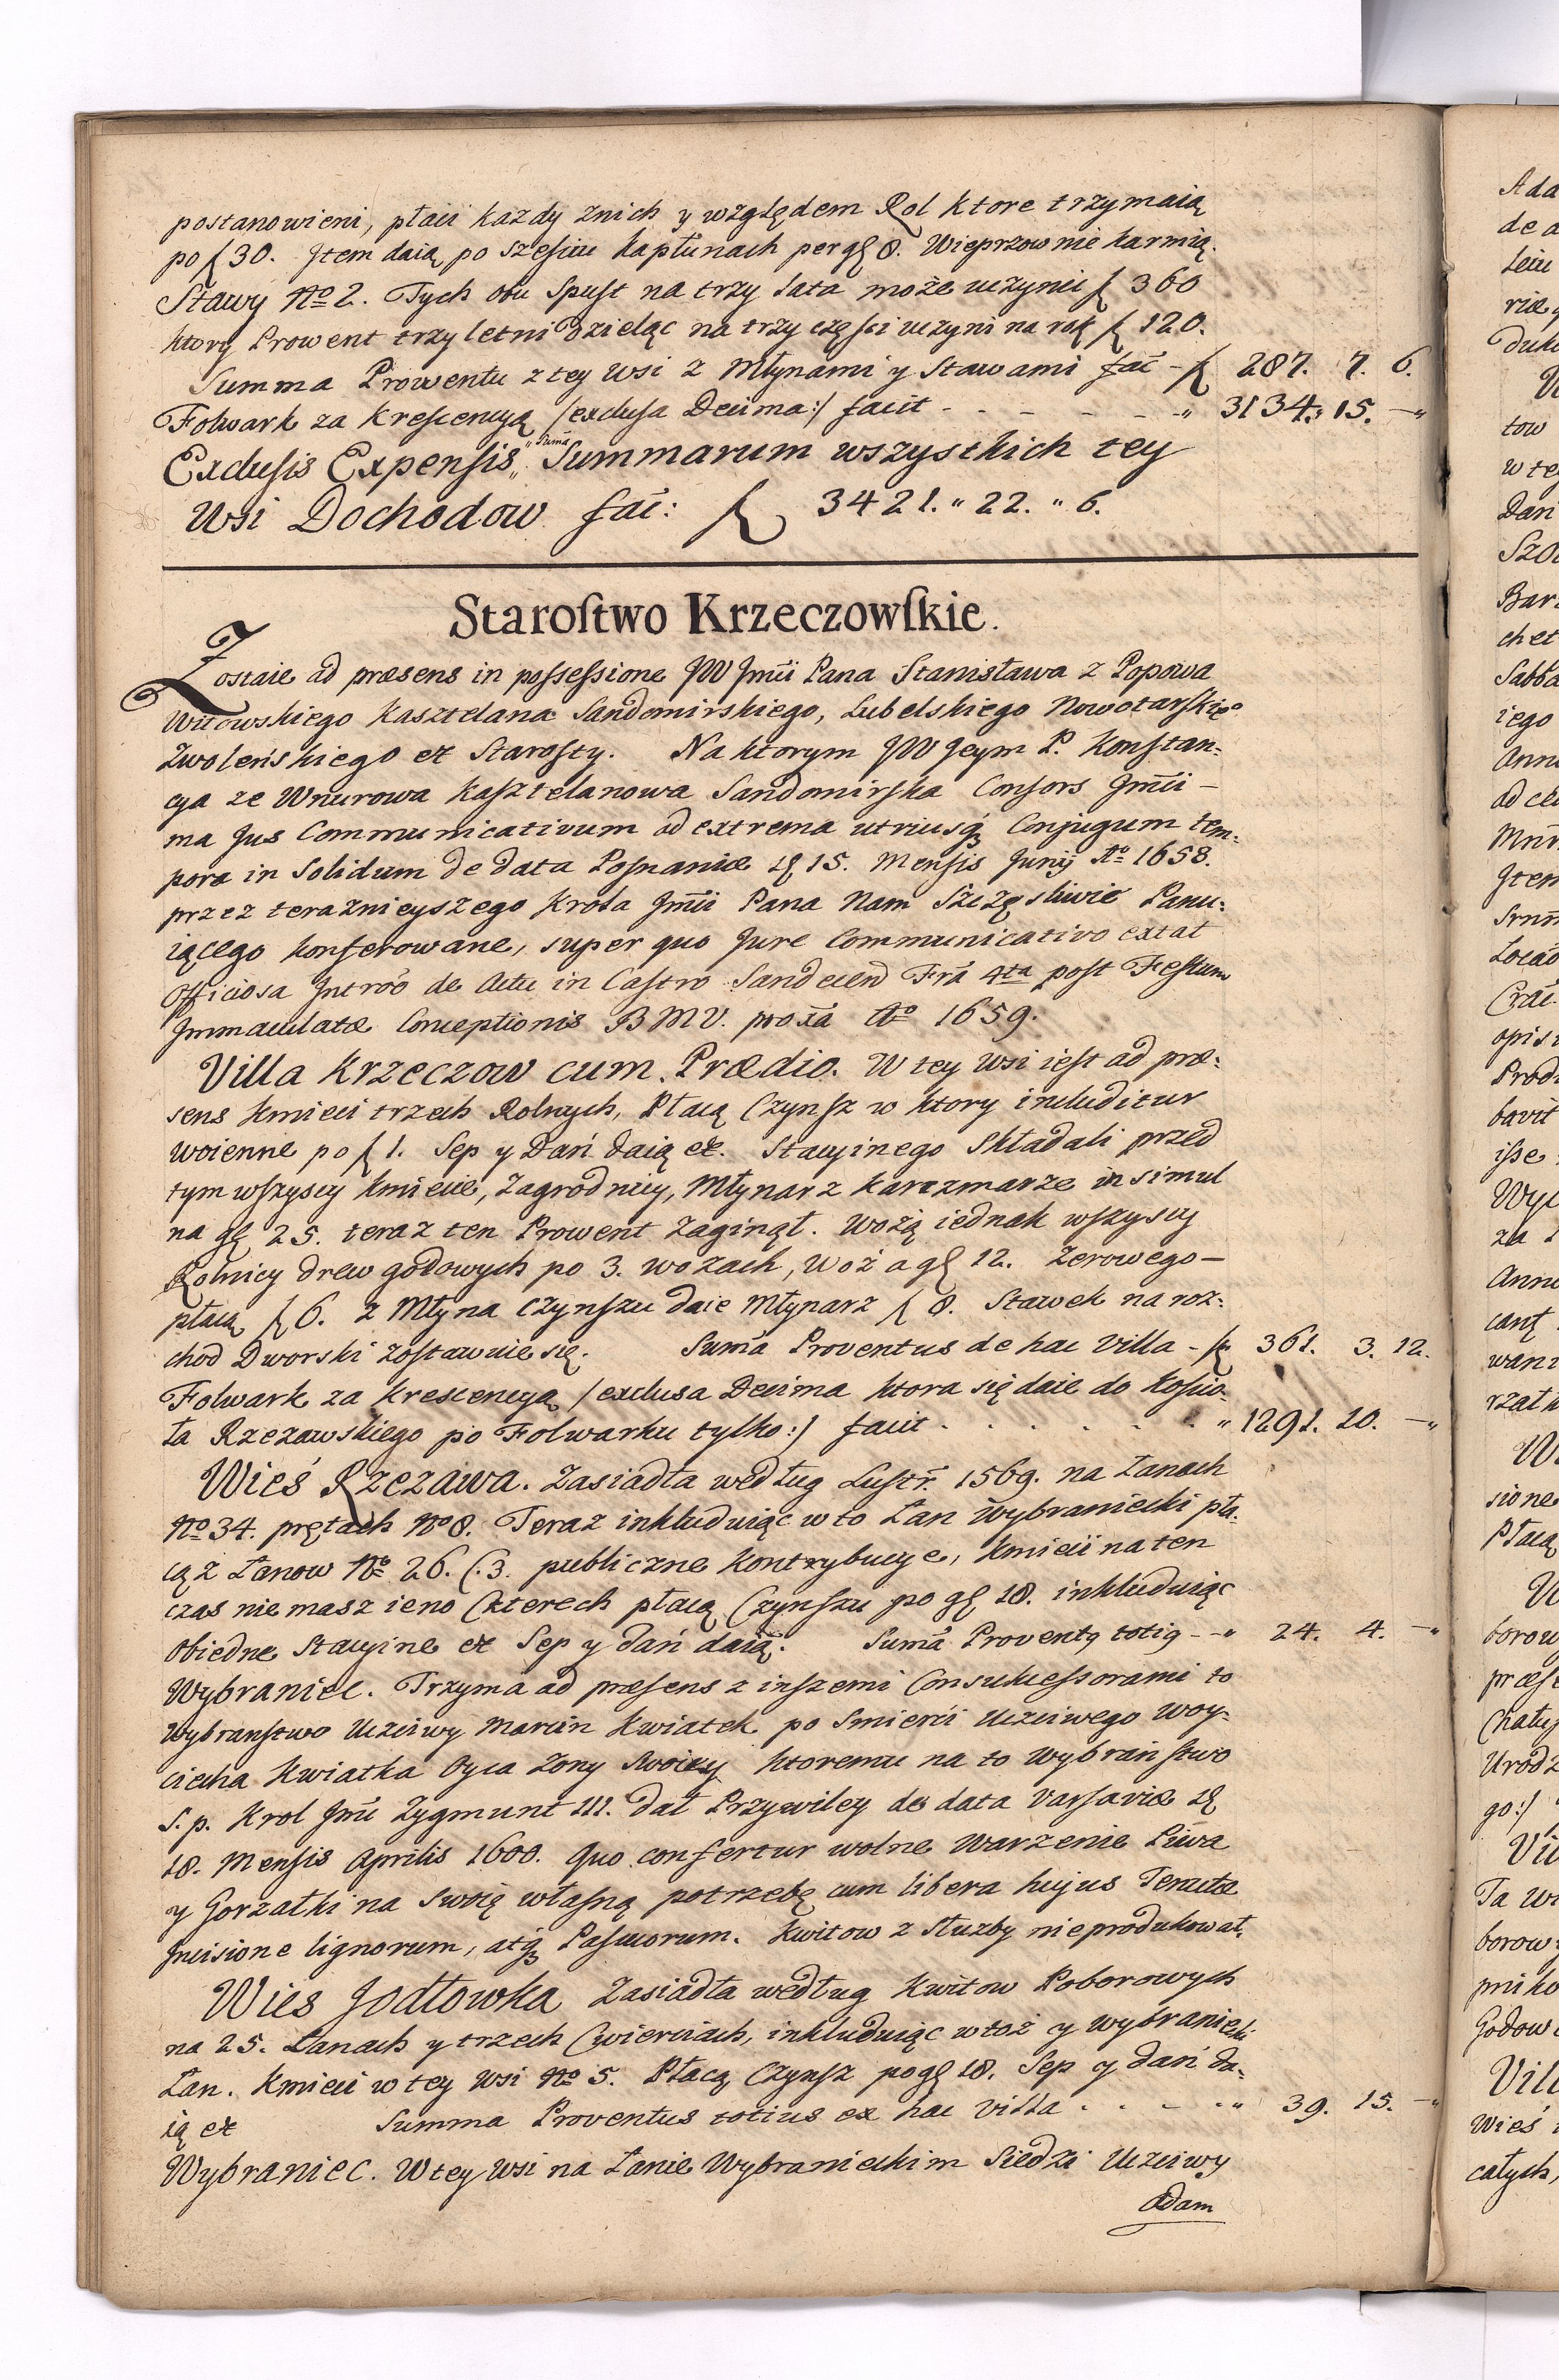 postanowieni, płaci każdy znich y względem Rol ktore trzymaią
po ƒ 30. Jtem daią po szesciu kapłunach per gƒ 8. Wieprzow nie karmią.
Stawy No 2. Tych obu Spust na trzy Lata może uczynić ƒ 360
ktory Prowent trzyletni Dzieląc na trzy części uczyni na rok ƒ 120.
Summa Prowentu z tey Wsi z Młynami y Stawami fac̄ - ƒ 287. 7. 6.
Folwark za Krescencyą /exclusa Decima:/ facit - - - - - - " 3134." 15. —"
Exclusis Expensis "Sum̄a" Summarum wszystkich tey
Wsi Dochodow fac̄: ƒ 3421. " 22. " 6.
Starostwo Krzeczowskie.
Zostaie ad præsens in possessione JW Jm̄ci Pana Stanisława z Popowa
Witowskiego Kasztelana Sandomirskiego, Lubelskiego Nowotarskiego
Zwoleńskiego et Starosty. Na ktorym JW Jeym P. Konstan-
cya ze Wnurowa Kasztelanowa Sandomirska Consors Jm̄ci —
ma Jus Communicativum ad extrema utriusq3 Conjugum tem-
pora in Solidum de data Posnaniæ d. 15. Mensis Junij Ao 1658.
przez teraznieyszego Krola Jm̄ci Pana Nam Szczęsliwie Panu-
iącego konferowane, super quo Jure Communicativo extat
Officiosa Intro͞o de Actu in Castro Sandecen̄ Fr̄a 4ta post Festum
Jmmaculatæ Conceptionis B M V. prox̄a Ao 1659.
Villa Krzeczow cum Prædio. W tey Wsi iest ad præ-
sens Kmieci trzech Rolnych, Płacą Czynsz w ktory includitur
Woienne po ƒ 1. Sep y Dań Daią et. Stacyinego Składali przed
tym wszyscy Kmiecie, Zagrodnicy, Młynarz Karczmarze in simul
na gƒ 25. teraz ten Prowent Zaginął. Wożą iednak wszyscy
Rolnicy drew godowych po 3. wozach, Woz a gƒ 12. Zerowego —
płacą ƒ 6. z Młyna Czynszu daie Młynarz ƒ 8. Stawek na roz-
chod Dworski Zostawuie się. Sum̄a Proventus de hac Villa - ƒ 361. 3. 12.
Folwark za Krescencyą /exclusa Decima ktora się daie do Kościo-
ła Rzezawskiego po Folwarku tylko:/ facit . . . . . . " 1291. 20. —"
Wieś Rzezawa. Zasiadła według Lustr̄. 1569. na Łanach
No 34. prętach No 8. Teraz inkluduiąc w to Łan Wybraniecki pła-
cą z Łanow No 26. (.3. publiczne Kontrybucye, Kmieci na ten
czas nie masz ieno Czterech płacą Czynszu po gƒ 18. inkluduiąc
Obiedne Stacyine et Sep y dań daią. Sum̄a Proventq totiq - -" 24. 4. —"
Wybraniec. Trzyma ad præsens z inszemi Consukcessorami to
Wybranstwo Uczciwy Marcin Kwiatek po Smierći Uczciwego Woy-
ciecha Kwiatka Oyca Zony Swoiey ktoremu na to Wybraństwo
S. p. Krol Jm̄ć Zygmunt III. Dał Przywiley de data Varsaviæ d.
18. Mensis Aprilis 1600. Quo confertur wolne Warzenie Piwa
y Gorzałki na Swoię własną potrzebę cum libera hujus Tenutæ
Jncisione lignorum, atq3 Pascuorum. Kwitow z Służby nieprodukował.
Wies Jodłowka Zasiadła według Kwitow Poborowych
na 25. Łanach y trzech Cwierciach, inkluduiąc wtoż y Wybraniecki
Łan. Kmieci w tey Wsi No 5. Płacą Czynsz po gƒ 18. Sep y dań da-
ią et Summa Proventus totius ex hac Villa . . - . -" 39. 15. —"
Wybraniec. W tey Wsi na Łanie Wybranieckim Siedzi Uczciwy
Adam